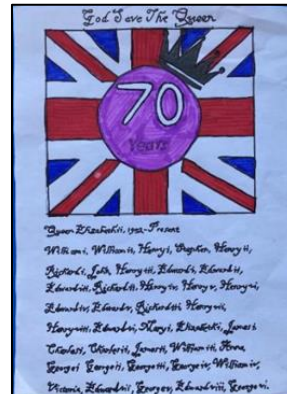 God Save The Queen
70
Years
Queen Elizabeth ii, 1952-Present
William i, William ii, Henry i, Stephen, Henry ii,
Richard i, John, Henry iii, Edward i, Edward ii,
Edward iii, Richard ii, Henry iv, Henry v, Henry vi,
Edward iv, Edward v, Richard iii, Henry vii,
Henry viii, Edward vi, Mary i, Elizabeth i, James i
Charles i, Charles ii, James ii, William iii, Anne,
George i, George ii, George iii, George iv, William iv,
Victoria, Edward vii, George v, Edward viii, George vi.